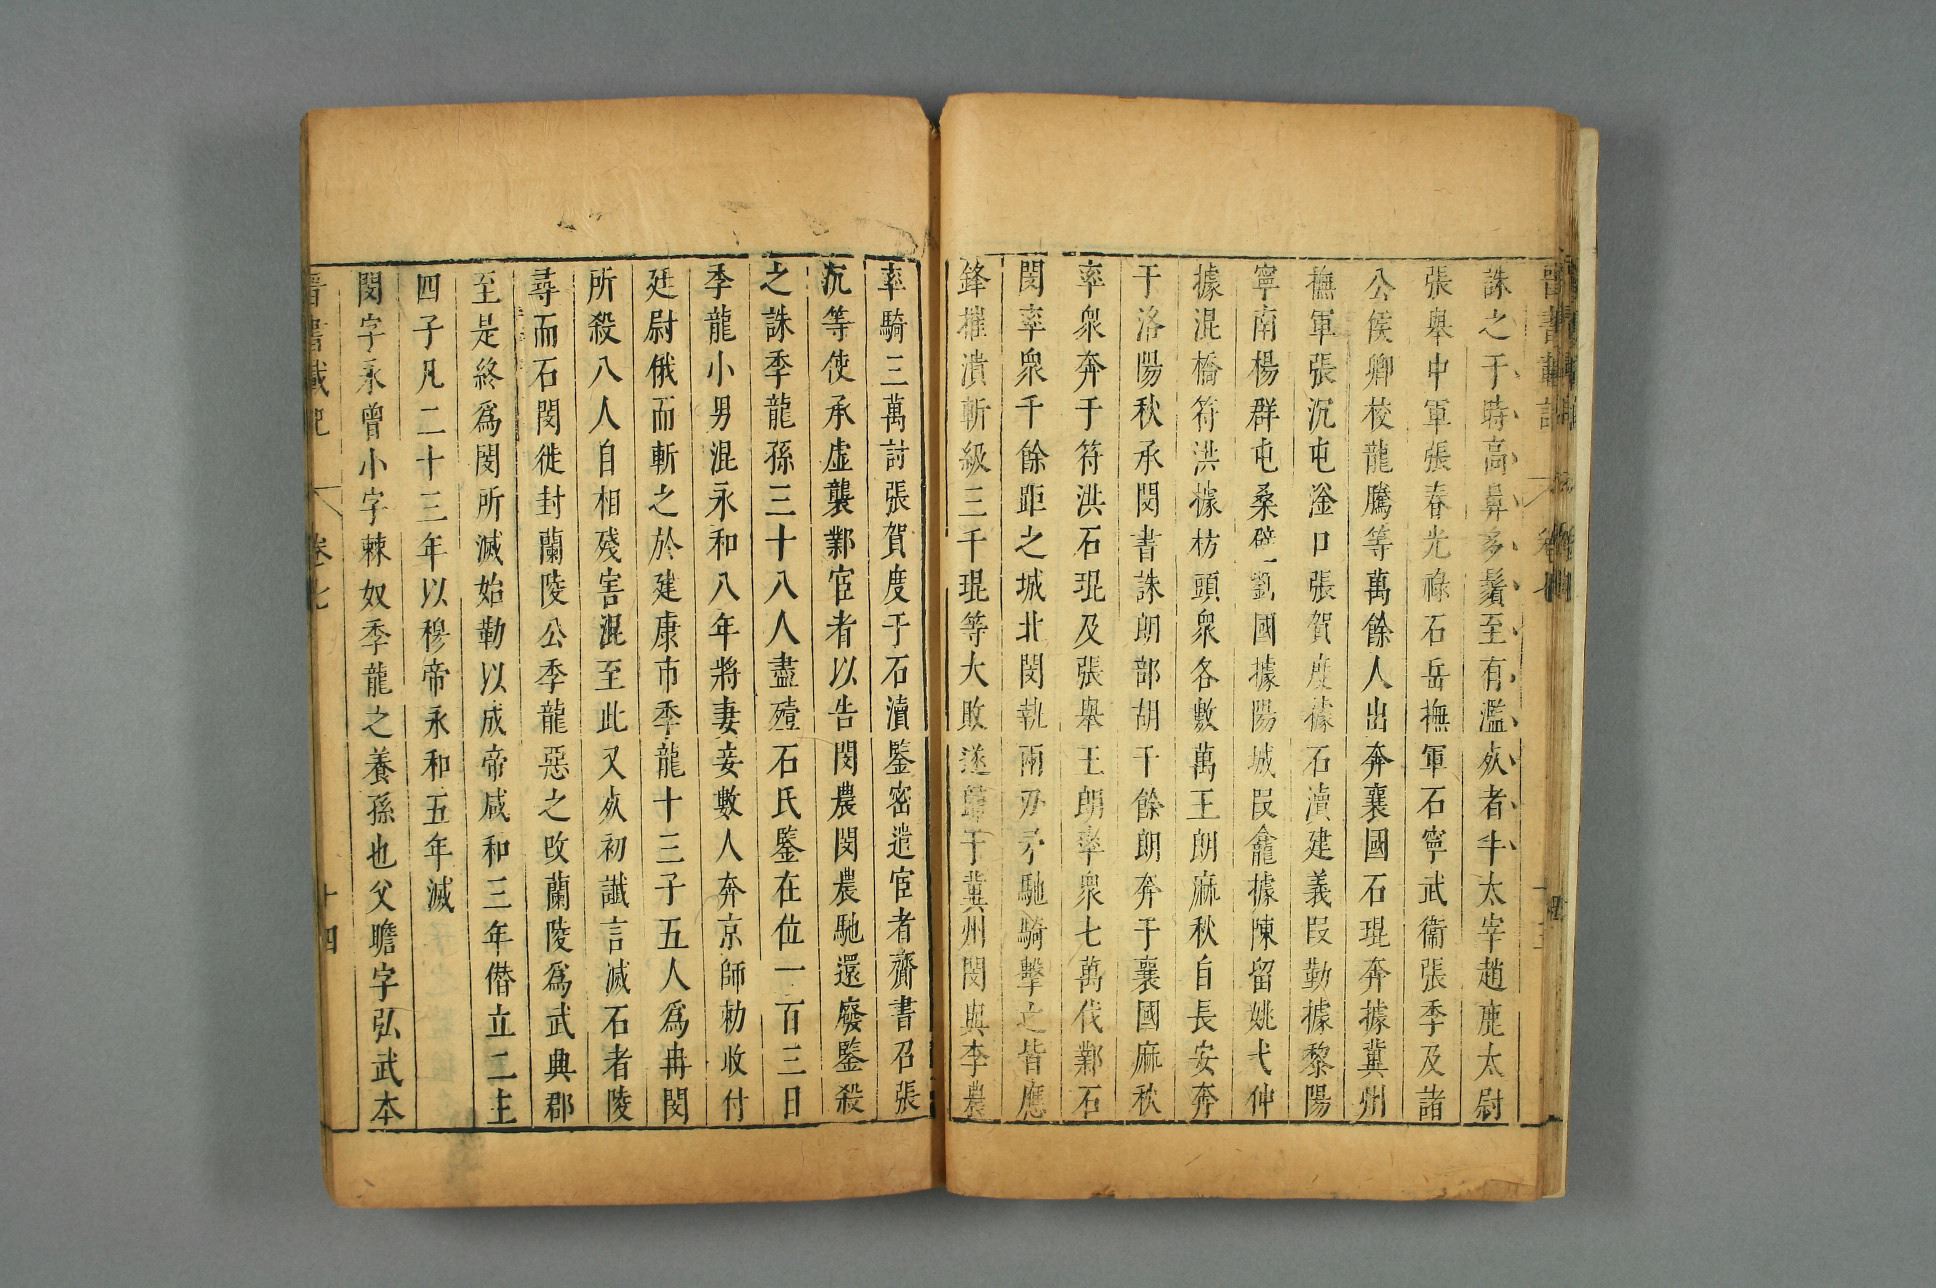 誅之于時高鼻多鬚至有濫𣦸者半太宰趙鹿太尉
張舉中軍張春光祿石岳撫軍石寧武衞張季及諸
公侯卿校龍騰等萬餘人出奔襄國石琨奔據冀州
撫軍張沉屯滏口張賀度據石瀆建義段勤據黎陽
寧南楊群屯桑壁劉國據陽城段龕據陳留姚弋仲
據混橋符洪據枋頭衆各數萬王朗麻秋自長安奔
于洛陽秋承閔書誅朗部胡千餘朗奔于襄國麻秋
率衆奔于符洪石琨及張舉王朗率衆七萬伐鄴石
閔率衆千餘距之城北閔執兩刃矛馳騎擊之皆應
鋒摧潰斬級三千琨等大敗遂歸于冀州閔與李農
率騎三萬討張賀度于石瀆鑒密遣宦者齎書召張
沉等使承虛襲鄴宦者以告閔農閔農馳還廢鑒殺
之誅季龍孫三十八人盡殪石氏鑒在位一百三日
季龍小男混永和八年將妻妾數人奔京師勑收付
廷尉俄而斬之於建康市季龍十三子五人爲冉閔
所殺八人自相殘害混至此又𣦸初讖言滅石者陵
尋而石閔徙封蘭陵公季龍惡之改蘭陵爲武興郡
至是終爲閔所滅始勒以成帝咸和三年僣立二主
四子凡二十三年以穆帝永和五年滅
閔字永曾小字棘奴季龍之養孫也父瞻字弘武本
晉書載記 卷七 十四